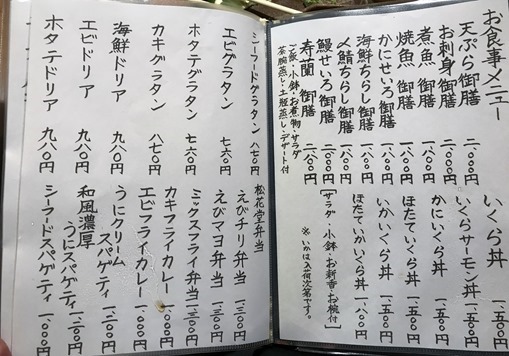 お食事メニュー
天ぷら御膳 二.〇〇〇円
お刺身御膳 二.〇〇〇円
煮魚御膳 一.八〇〇円
焼魚御膳 一.八〇〇円
かにせいろ御膳 一.八〇〇円
海鮮ちらし御膳 一.八〇〇円
〆鯖ちらし御膳 一.八〇〇円
鰻せいろ御膳 二.八〇〇円
寿蘭御膳 二.八〇〇円
ご飯・小鉢・お煮物・サラダ
茶碗蒸し・土瓶蒸し・デザート付
いくら丼 一.五〇〇円
いくらサーモン丼 一.五〇〇円
かにいくら丼 一.五〇〇円
ほたていくら丼 一.五〇〇円
いかいくら丼 一.五〇〇円
ほたていかいくら丼 一.八〇〇円
[サラダ・小鉢・お新香・お椀付]
※いかは入荷次第です。
シーフードグラタン 八七〇円
エビグラタン 七六〇円
ホタテグラタン 七六〇円
カキグラタン 八七〇円
海鮮ドリア 九八〇円
エビドリア 九八〇円
ホタテドリア 九八〇円
松花堂弁当
えびチリ弁当 一.三〇〇円
えびマヨ弁当 一.三〇〇円
ミックスフライ弁当 一.三〇〇円
カキフライカレー 一.〇〇〇円
エビフライカレー 一.〇〇〇円
うにクリーム
スパゲティ 一.二〇〇円
和風濃厚
うにスパゲティ 一.二〇〇円
シーフードスパゲティ 一.〇〇〇円